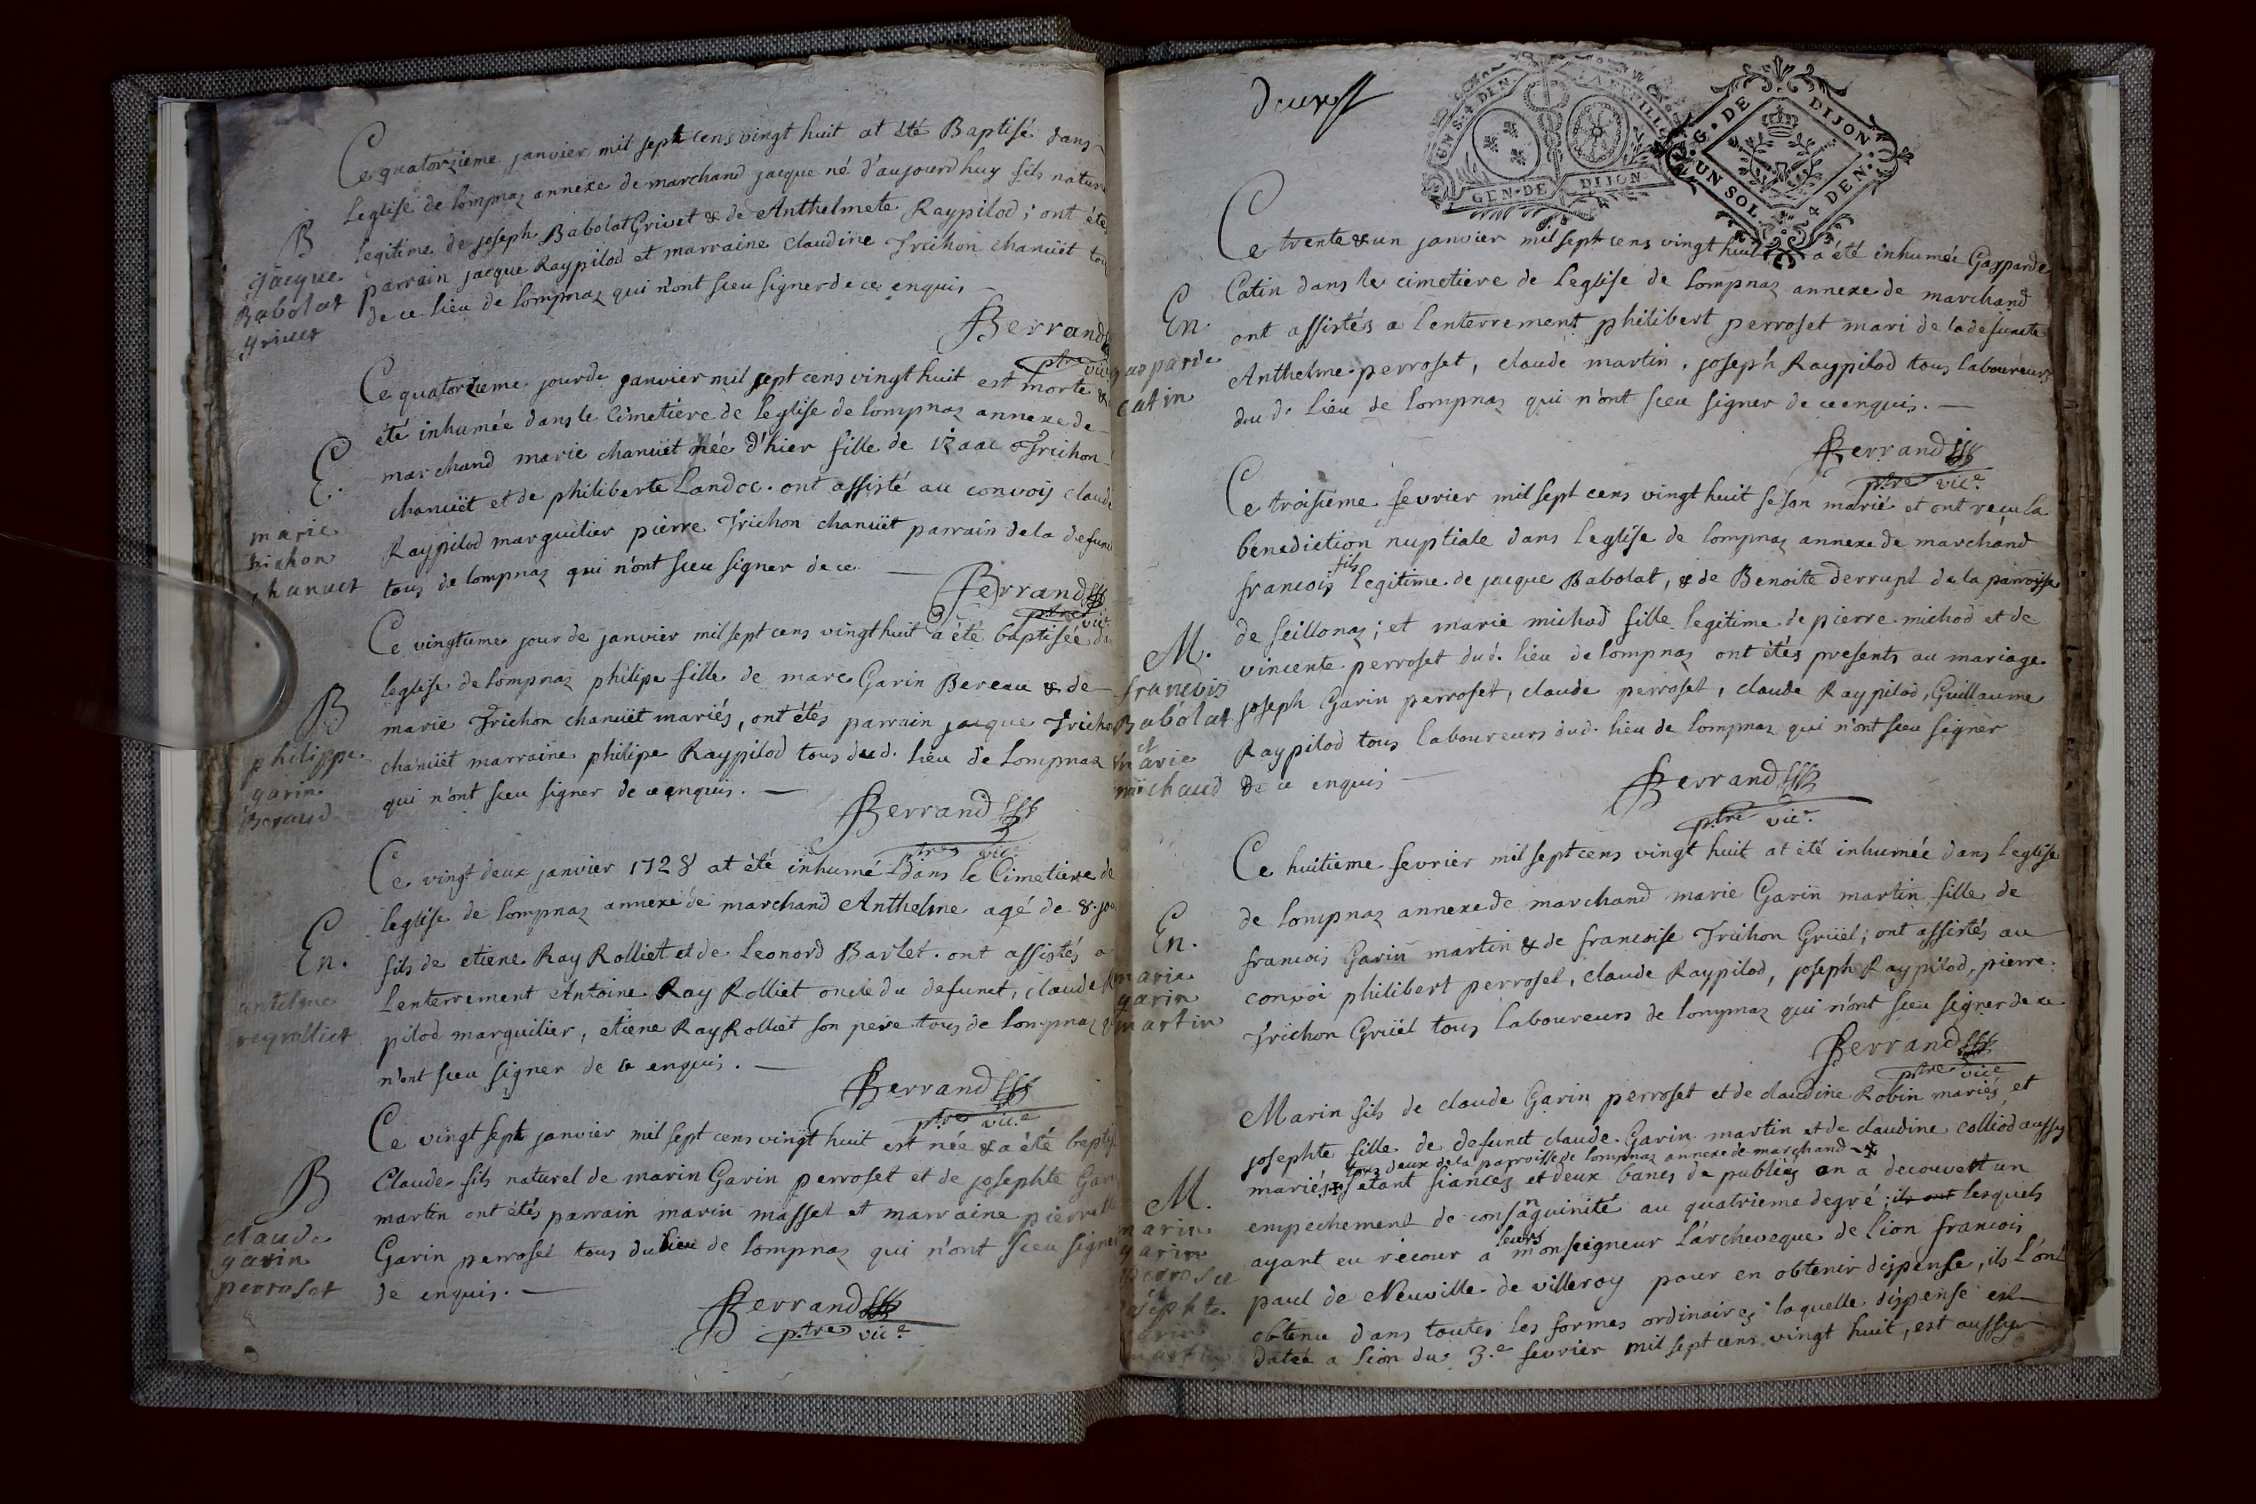 Ce quatorzieme janvier mil sept cens vingt huit at été Baptisé dans
Leglise de lompnaz annexe de marchand jacque né d'aujourdhuy fils nature
B
jacque
Babolat
grivet
legitime de joseph Babolat Grivet & de Anthelmete Raypilod; ont été
parrain jacque Raypilod et marraine claudine Trichon chanuët tou
de ce lieu de lompnaz qui n'ont sceu signer de ce enquis
Berrand
ptre vic
Ce quatorzieme jour de janvier mil sept cens vingt huit est morte &
été inhumée dans le Cimetiére de leglise de lompnaz annexe de
E.
marie
trichon
chanuet
marchand marie chanuët née d'hier fille de izaac Trichon
chanuët et de philiberte Landoc. ont assisté au convoij claude
Raypilod marguilier pierre Trichon chanuët parrain dela defun
tous de lompnaz qui n'ont sceu signer de ce
Berrand
ptre vic.
Ce vingtieme jour de janvier mil sept cens vingt huit a été baptisée da
B
philippe
garin
Beraud
leglise de lompnaz philipe fille de marc Garin Bereau & de
marie Trichon chanuët mariés, ont étés parrain jacque Tricho
chanuët marraine philipe Raypilod tous dud. lieu de lompnaz
qui n'ont sceu signer de ce enquis.
Berrand
ptre vic
Ce vingt deux janvier 1728 at été inhumé dans le Cimetiere de
En.
antelme
reyrolliet
leglise de lompnaz annexe de marchand Anthelme agé de 8. jou
fils de etiene Ray Rolliet et de Leonord Barlet. ont assistés a
Lenterrement Antoine Ray Rolliet oncle du defunct, claude R
pilod marguilier, etiene Ray Rolliet son pere tous de lompnaz q
n'ont sceu signer de ce enquis.
Berrand
ptre vic.e
Ce vingt sept janvier mil sept cens vingt huit est née & a été bapti
B
claude
garin
perroset
Claude fils naturel de marin Garin perroset et de josephte Gar
martin ont étés parrain marin masset et marraine pierrette
Garin perroset tous du lieu de lompnaz qui n'ont sceu signer
de enquis.
Berrand
ptre vic.e
deux
GEN. DE DIJON
G. DE DIJON
UN SOL 4 DEN.
Ce trente & un janvier mil sept cens vingt huit a été inhumée Gasparde
En.
gasparde
catin
Catin dans le cimetiere de leglise de lompnaz annexe de marchand
ont assistés a lenterrement philibert perroset mari de la defuncte
Anthelme perroset, claude martin, joseph Raypilod tous laboureurs
du d. lieu de lompnaz qui n'ont sceu signer de ce enquis.
Berrand
ptre vic.e
Ce troisieme fevrier mil sept cens vingt huit se son marié et ont reçu la
bénediction nuptiale dans leglise de lompnaz annexe de marchand
francois fils legitime de jacque Babolat, & de Benoite derrupt de la parroisse
M.
francois
Babolat
et
marie
michaud
de seillonaz; et marie michod fille legitime de pierre michod et de
vincente perroset dud. lieu de lompnaz ont étés presents au mariage
joseph Garin perroset, claude perroset, claude Raypilod, Guillaume
Raypilod tous laboureurs dud. lieu de lompnaz qui n'ont sceu signer
de ce enquis
Berrand
ptre vic.
Ce huitieme fevrier mil sept cens vingt huit at été inhumée dans leglise
En.
marie
garin
martin
de lompnaz annexe de marchand marie Garin martin fille de
francois Garin martin & de francoise Trichon Grüel; ont assistés au
convoi philibert perroset, claude Raypilod, joseph Raypilod, pierre
Trichon Grüel tous laboureurs de lompnaz qui n'ont sceu signer de ce
Berrand
ptre vic.e
Marin fils de claude Garin perroset et de claudine Robin mariés, et
josephte fille de defunct claude Garin martin et de claudine colliod aussy
tous deux de la parroisse de lompnaz annexe de marchand
M.
marin
garin
perroset
josephte
garin
martin
mariés, setant fiancez et deux bancs de publiéz on a decouvert un
empechement de consanguinité au quatrieme degré; ils ont lesquels
ayant eu recour a leurs monseigneur l'archeveque de lion francois
paul de Neuville de villeroy pour en obtenir dispense, ils l'ont
obtenu dans toutes les formes ordinaires laquelle dispense est
datée a lion du 3.e fevrier mil sept cens vingt huit, est aussy